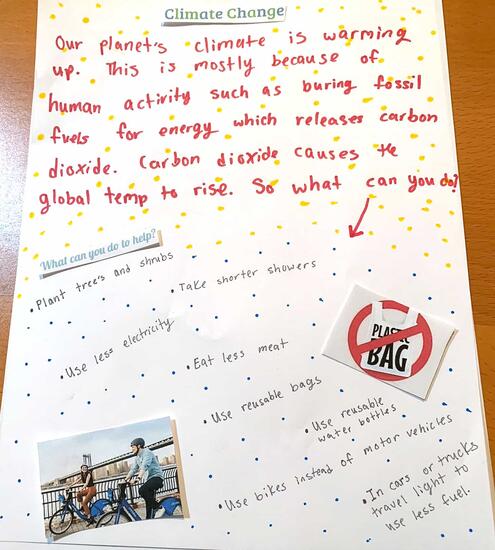 Climate Change
Our planet's climate is warming
up. This is mostly because of
human activity such as buring fossil
fuels for energy which releases carbon
dioxide. Carbon dioxide causes the
global temp to rise. So what can you do?
What can you do to help?
• Plant tree's and shrubs
• Take shorter showers
• Use less electricity
• Eat less meat
PLASTIC
BAG
• Use reusable bags
• Use reusable
water bottles
• Use bikes instead of motor vehicles
• In cars or trucks
travel light to
use less fuel.